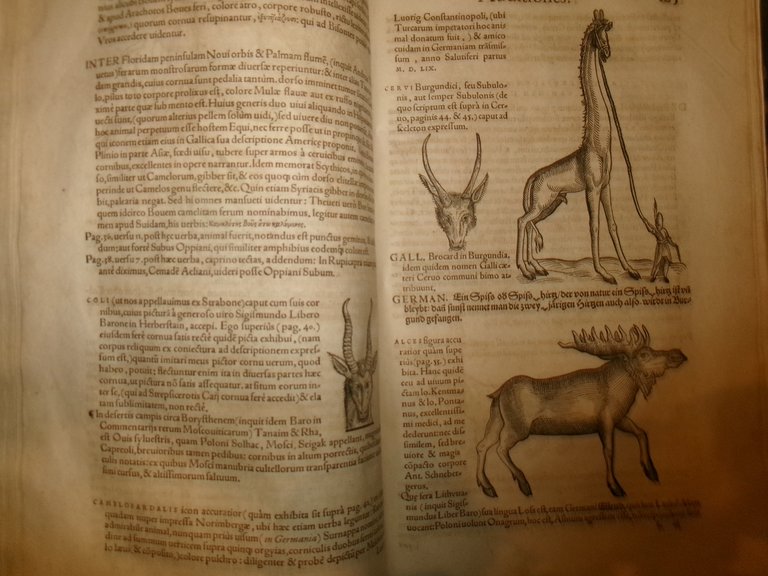 & apud Arachotos Boues feri, colore atro, corpore robusto,
Vros accedere uidentur.
INTER Floridam peninsulam Noui orbis & Palmam flumē, (inquit Andreas
uetus) ferarum monstrosarum formæ diuersæ reperiuntur: & inter
dam grandis, cuius cornua sunt pedalia tantùm. dorso imminet
lo, pilus toto corpore prolixus est, colore Mulæ flauæ aut ex rufo
ximè parte quæ sub mento est. Huius generis duo uiui aliquando in
uecti sunt, (quorum alterius pellem solùm uidi,) sed uiuere diu non
hoc animal perpetuum esse hostem Equi, nec ferre posse us in propin
qui iconem etiam eius in Gallica sua descriptione Americę proponit,
Plinio in parte Asiæ, fœdi uisu, tubere super armos à ceruicibus
cornibus, excellentes in opere narrantur. Idem memorat Scythicos, in
so, similiter ut Camelorum, gibber sit, & eos quoq; cùm dorso
perinde ut Camelos genu flectere, &c. Quin etiam Syriacis gibber in
bit, palearia negat. Sed hi omnes mansueti uidentur: Theueti uerò
quem idcirco Bouem camelitam ferum nominabimus, legitur autem
men apud Suidam, his uerbis:
Pag. 56. uersu 11. post hęc uerba, animal fuerit, notandus est punctus geminus,
dum: aut forté Subus Oppiani, qui similiter amphibius eodemq; colore est.
Pag. 58. uersu 7. post hæc uerba, caprino uictas, addendum: In Rupicapra
antè diximus, Cemadē Aeliani, uideri posse Oppiani Subum.
COLI (ut nos appellauimus ex Strabone) caput cum suis cor
nibus, cuius picturā à generoso uiro Sigismundo Libero
Barone in Herberstain, accepi. Ego superiùs (pag. 40.)
eiusdem ferè cornua satis rectè quidē picta exhibui, (nam
corpus reliquum ex coniectura ad descriptionem expres-
sum est,) quantū imitari meus pictor cornu uerum, quod
habeo, potuit; flectuntur enim ita in diuersas partes hæc
cornua, ut pictura nō satis assequatur. at situm eorum in-
ter se, (qui ad Strepsicerotis Carj cornua ferè accedit) & ela
tam sublimitatem, non rectè.
In desertis campis circa Borysthenem (inquit idem Baro in
Commentarijs rerum Moscouiticarum) Tanaim & Rha,
est Ouis syluestris, quam Poloni Solhac, Mosci, Seigak appellant,
Capreoli, breuioribus tamen pedibus: cornibus in altum porrectis,
culis notatis: ex quibus Mosci manubria cultellorum transparentia faciunt
simi cursus, & altissimorum saltuum.
CAMELOPARDALIS icon accuratior (quàm exhibita sit suprà pag.
quidem nuper impressa Norimbergæ, ubi hæc etiam uerba leguntur.
admirabile animal, nunquam priùs uisum (in Germania) Surnappa
ad summum uerticem supra quinq; orgyias, corniculis duobus
lo læui & cōposito,) colore pulchro: diligenter & probè depictū per
Luorig Constantinopoli, (ubi
Turcarum imperatori hoc ani
mal donatum fuit,) & amico
cuidam in Germaniam trāsmis-
sum, anno Salutiferi partus
M. D. LIX.
CERVI Burgundici, seu Subulo-
nis, aut semper Subulonis (de
quo scriptum est suprà in Cer
uo, paginis 44. & 45.) caput ad
sceleton expressum.
GALL. Brocard in Burgundia,
idem quidem nomen Galli cæ
teri Ceruo communi bimo at
tribuunt.
GERMAN. Ein Spiso ob Spiso, hirtz/ der von natur ein Spiso, hirtz ist vñ
bleybt: dañ sunst nennet man die zwey, järigen Hirtzen auch also. wirdt in Bur
gund gefangen.
ALCES figura accu
ratior quàm supe
riùs (pag. 55.) exhi
bita. Hanc quidē
ceu ad uiuum pi-
ctam Io. Kentma-
nus & Io. Ponta-
nus, excellentissi-
mi medici, ad me
dederunt: nec dis-
similem, sed bre-
uiore & magis
cōpacto corpore
Ant. Schneber-
gerus.
Quę fera Lithua-
nis (inquit Sigis-
mundus Liber Baro) sua lingua Loss est, eam Germani
uocant: Poloni uolunt Onagrum, hoc est, Asinum agrestem